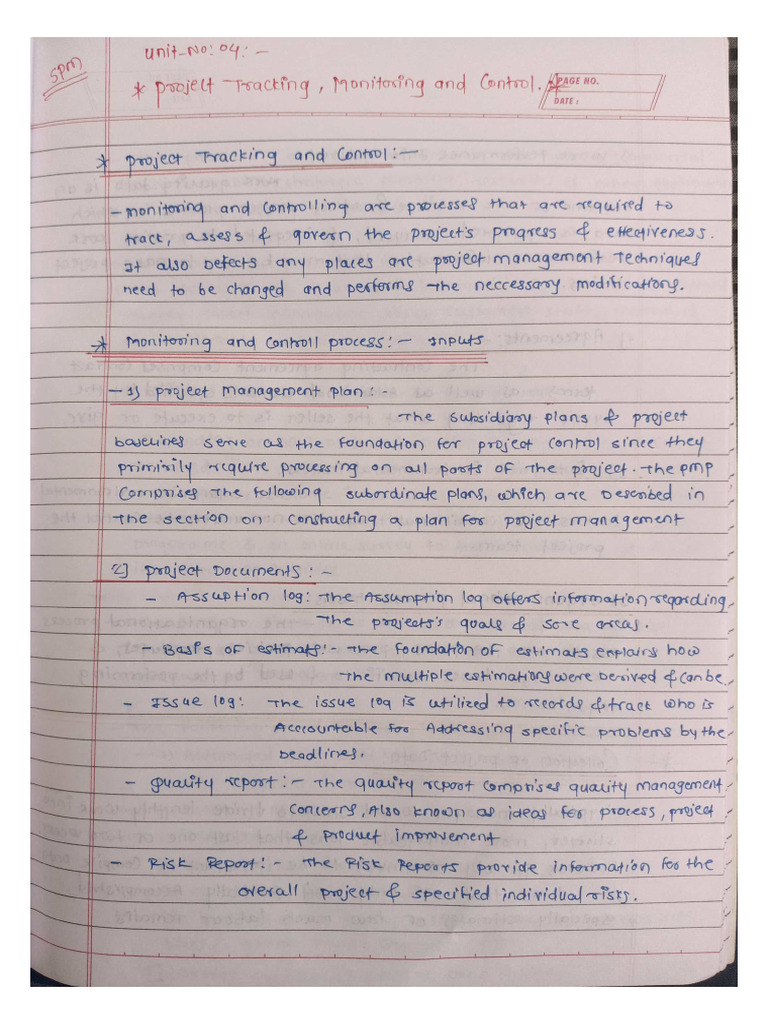 SPM
Unit-No: 04: -
* Project Tracking, Monitoring and Control. *
PAGE NO.
DATE :
* Project Tracking and Control:-
- Monitoring and Controlling are processes that are required to
track, assess & govern the project's progress & effectiveness.
It also Defects any places are project management Techniques
need to be changed and performs the neccessary modifications.
* Monitoring and Controll process:- Inputs
- 1) Project Management plan :-
The subsidiary plans & project
baselines serve as the foundation for project control since they
priminily require processing on all parts of the project. The PMP
Comprises the following subordinate plans, which are Described in
the section on constructing a plan for project management
2] Project Documents : -
- Assuption log: The Assumption log offers information regarding
The projects's goals & sore areas.
- Basis of estimats:- The foundation of estimats explains how
The multiple estimations were derived & can be.
- Issue log: The issue log is utilized to records & track who is
Accountable for Addressing specific problems by the
Deadlines.
- Quality report :- The quality report comprises quality management
Concerns, Also known as ideas for process, project
& product improvement
- Risk Report :- The Risk Reports provide information for the
overall project & specified individual risks.